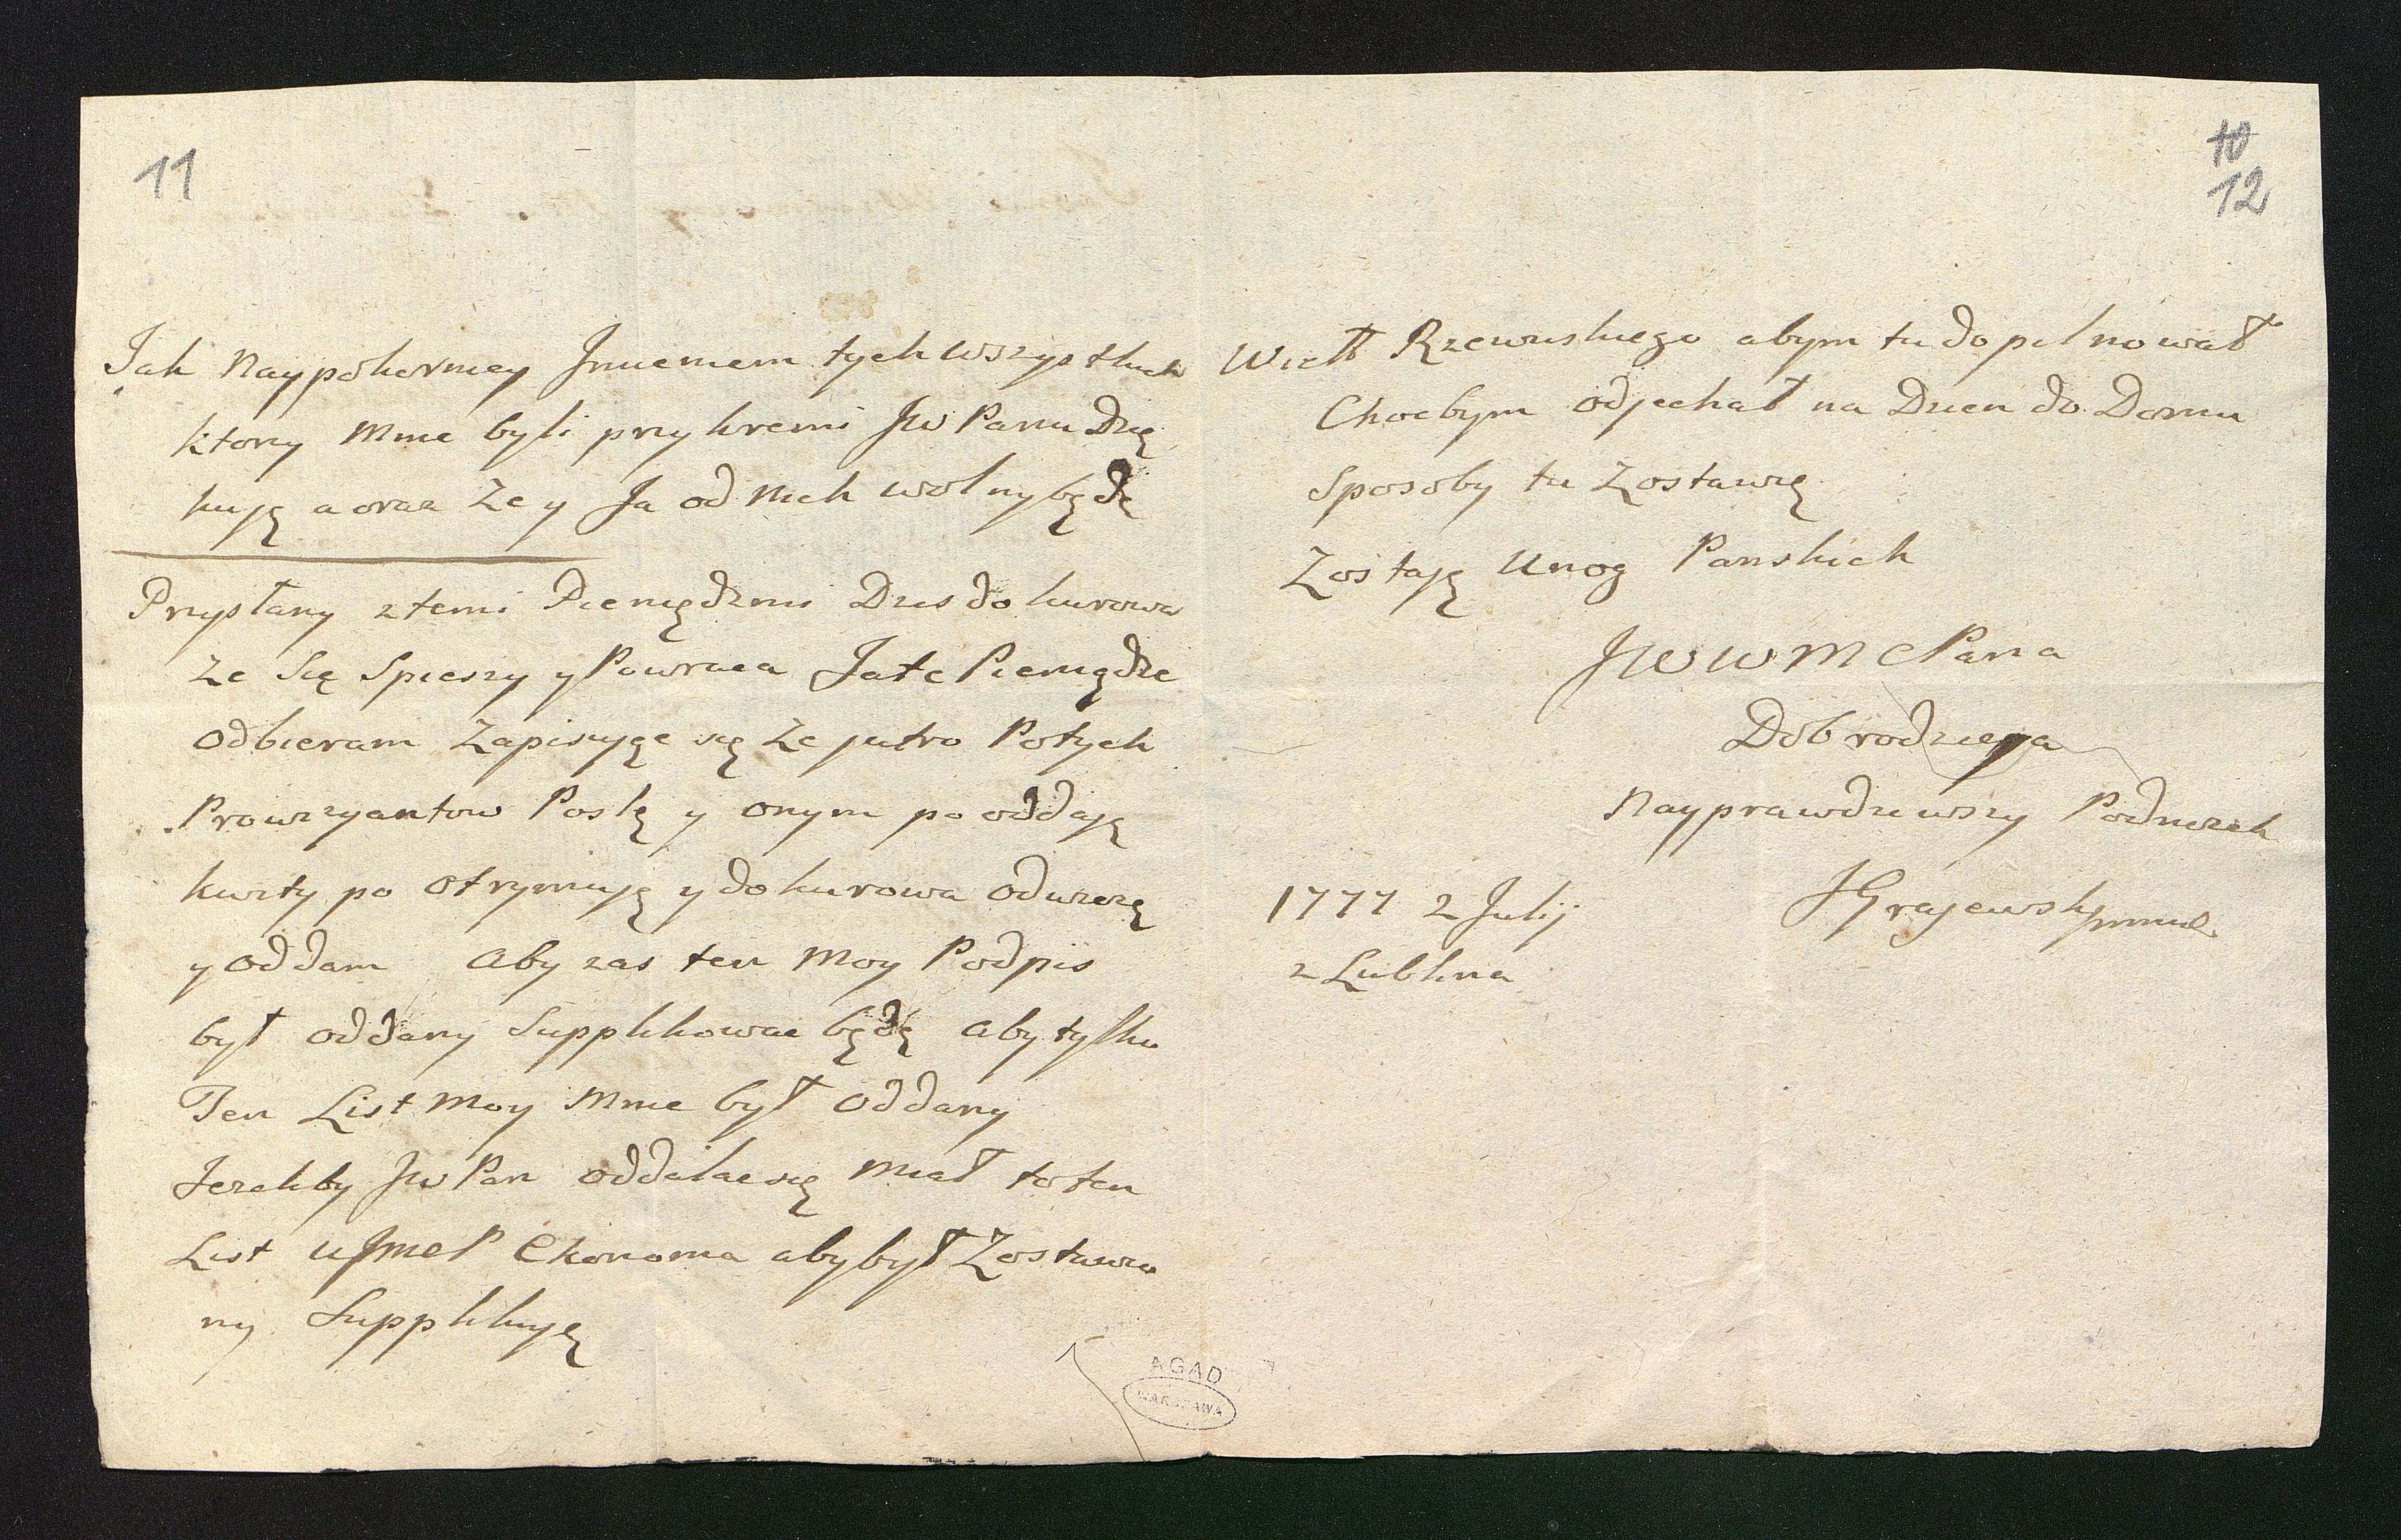 11
Jak Naypokorniey Jmieniem tych wszystkich
ktorzy Mnie byli przykremi JW Panu Dzię
kuję a oraz Ze y Ja od Nich wolny będę
Przysłany z temi Pieniędzmi Dzis do kurowa
Ze Się Spieszy y Powraca Ja te Pieniądze
Odbieram Zapisuyąc się Ze jutro Po tych
Prowizyantow Poslę y onym po oddaję
kwity po Otrzymuję y do kurowa Odwiozę
y Oddam Aby zas ten Moy Podpis
był oddany Supplikowac będę Aby tylko
Ten List Moy Mnie był Oddany
Jezeliby JW Pan Oddalac się Miał to ten
List u JmcP Ekonoma aby był Zostawio
ny Supplikuję
10
12
Wielb Rzewuskiego abym tu dopilnował
Chocbym Odjechał na Dzien do Domu
Sposoby tu Zostawię
Zostaję U nog Panskich
JW W M C Pana
Dobrodzieja
Nayprawdziwszy Podnozek
JGrajewski
1777 2 Julij
z Lublina
AGAD
WARSZAWA